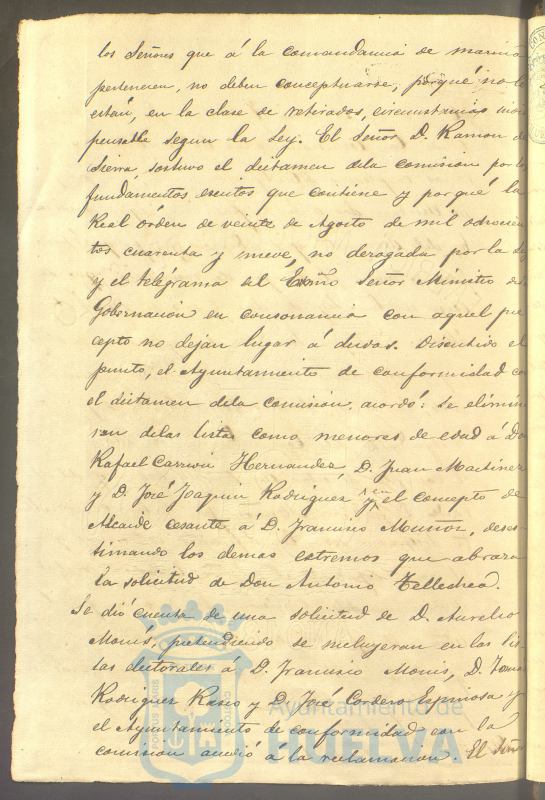 los Señores que á la comandancia de marina
pertenecen, no deben conceptuarse, porqué no lo
están, en la clase de retirados, circunstancia
pensable segun la Ley. El Señor D. Ramon de
Sierra, sostuvo el dictamen dela comision por los
fundamentos escritos que contiene y porqué la
Real órden de veinte de Agosto de mil ochocien
tos cuarenta y nueve, no derogada por la Ley
y el telégrama del Exmo Señor Ministro dela
Gobernacion en consonancia con aquel pre
cepto no dejan lugar á dudas. Discutido el
punto, el Ayuntamiento de conformidad con
el dictamen dela comision, acordó: se elimin
ran delas listas como menores de edad á Don
Rafael Hernandez, D. Juan Martinez
y D. José Joaquin Rodriguez y en el concepto de
Alcaide cesante á D. Francisco Muñoz, deses-
timando los demas estremos que abraza
la solicitud de Don Antonio Tellechea.
Se dió cuenta de una solicitud de D. Aurelio
Monis, pretendiendo se incluyeran en las lis
tas electorales á D. Francisco Monis, D. Tomas
Rodriguez Rasco y D. José Cordero Espinosa y
el Ayuntamiento de conformidad con la
comision accedió á la reclamacion. El Señor
Ayuntamiento de
HUELVA